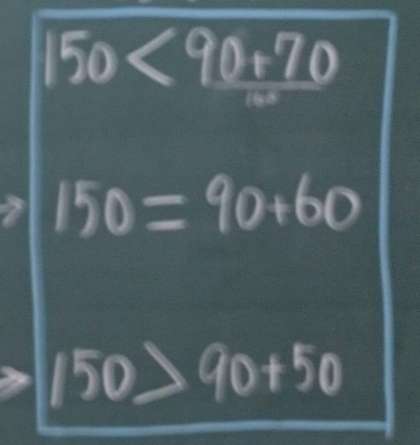 150<90+70
160
→ 150=90+60
→ 150>90+50